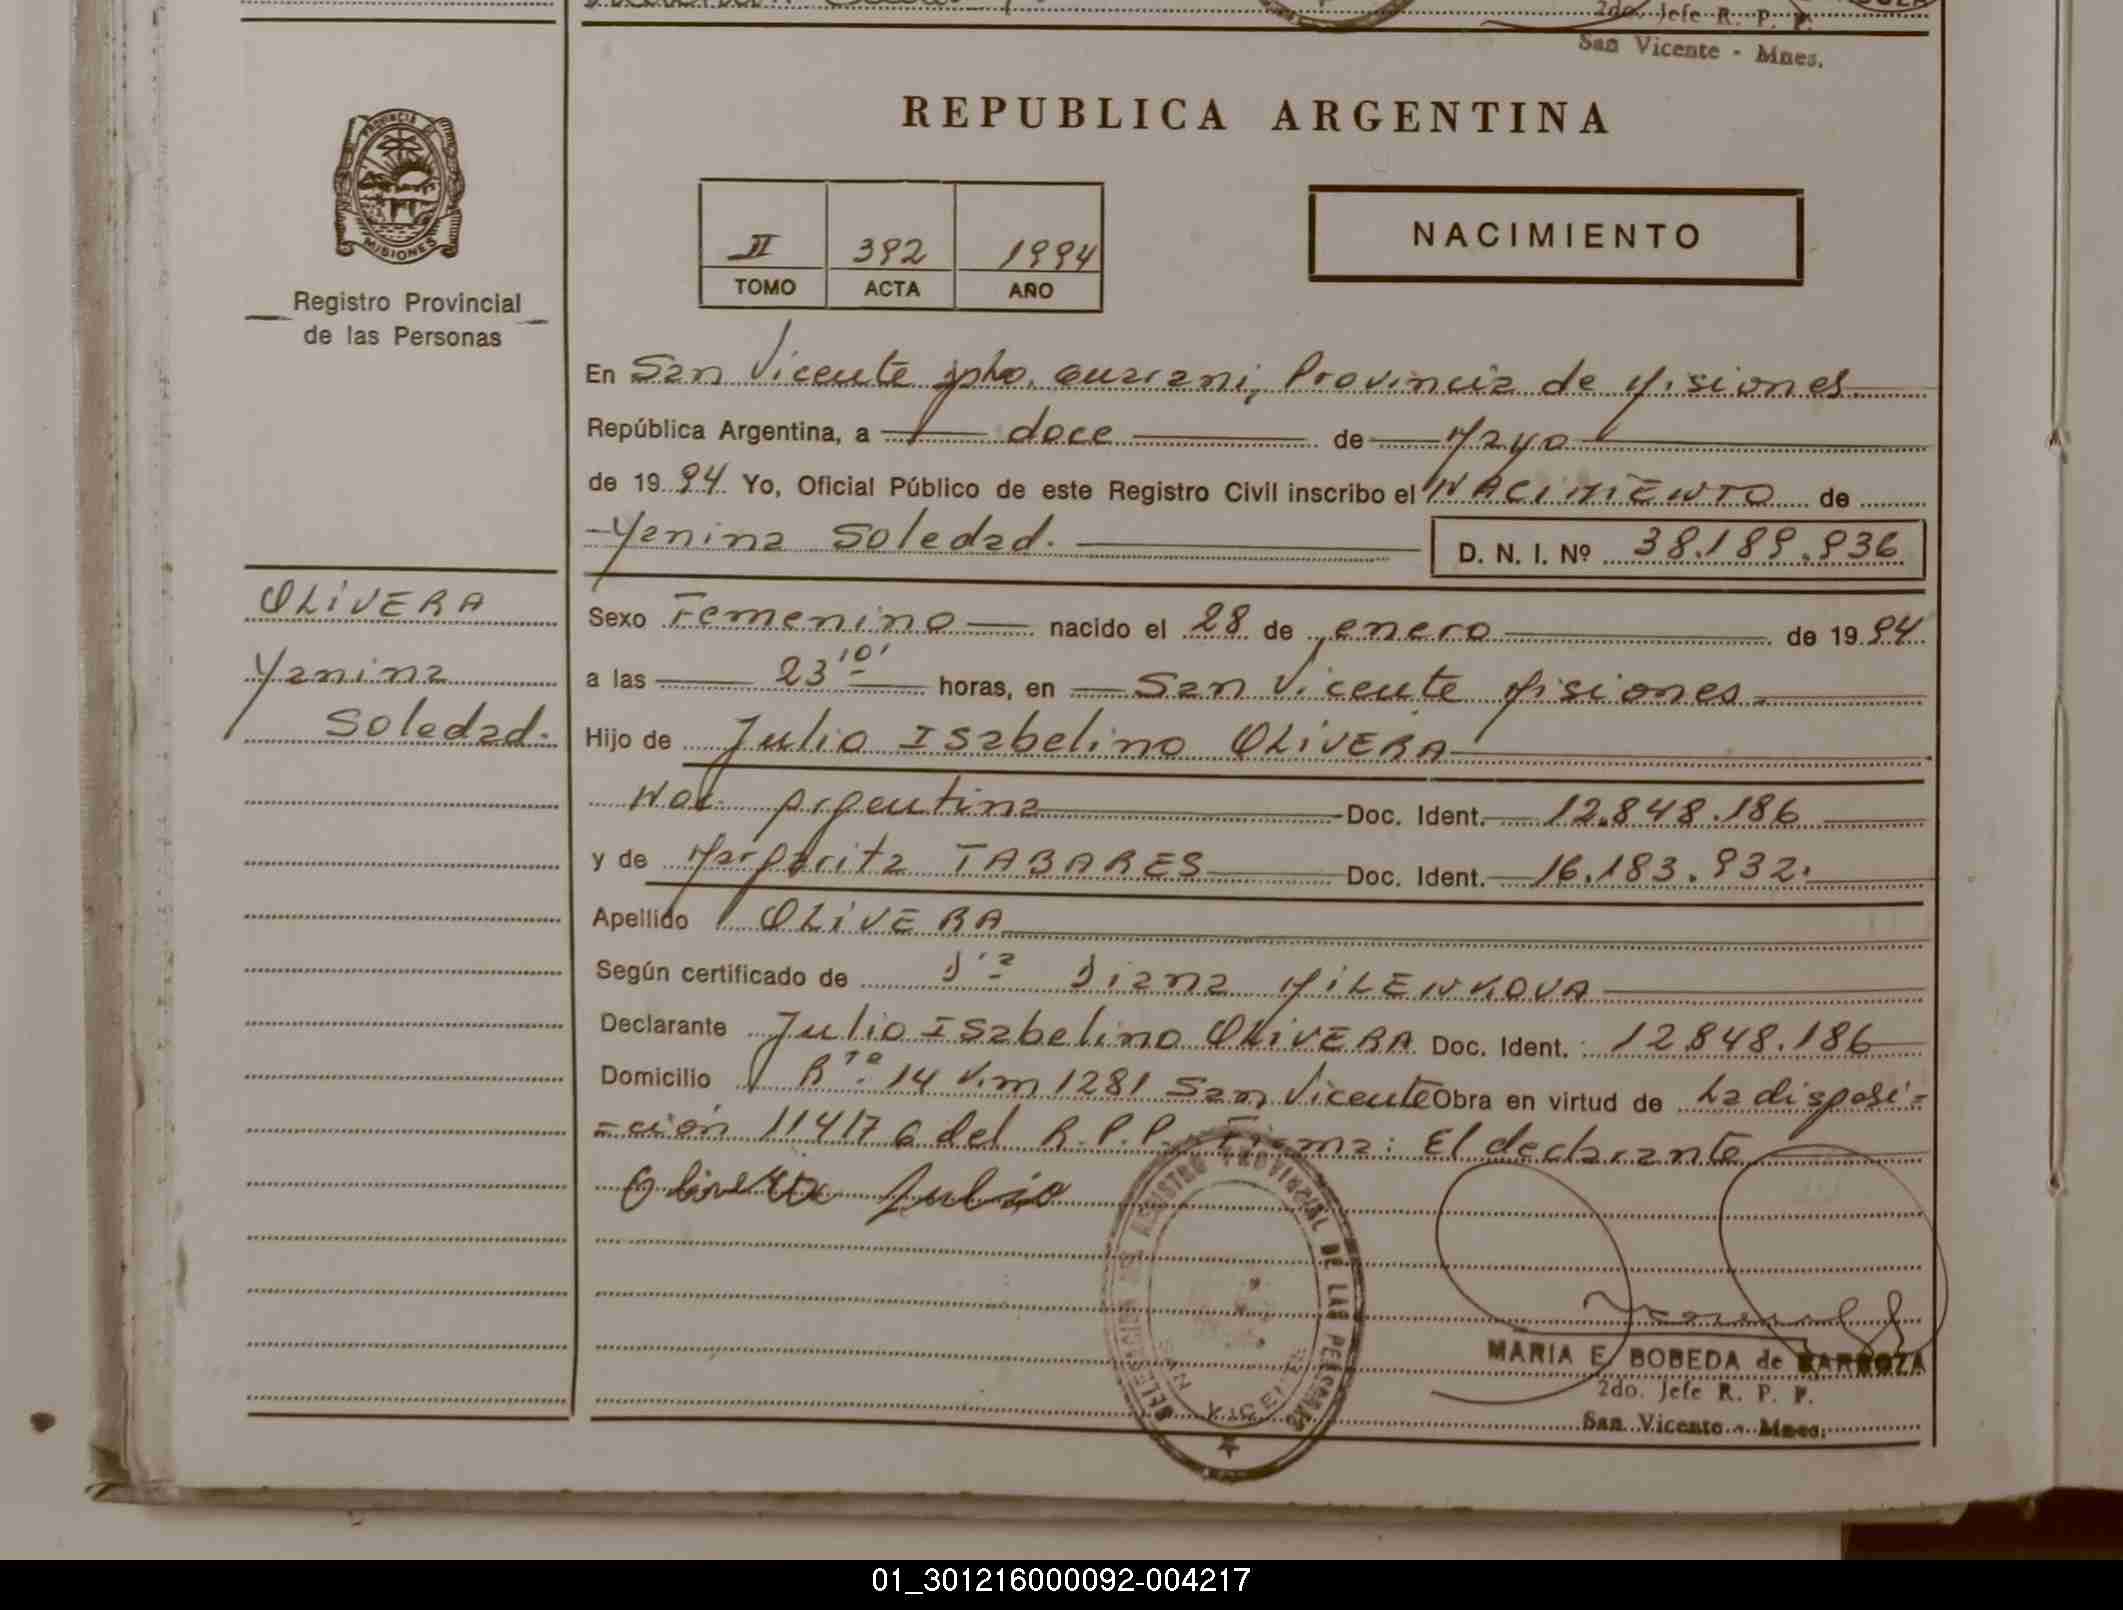 2do. Jefe R. P. P.
San Vicente - Mnes.
REPUBLICA ARGENTINA
PROVINCIA DE
MISIONES
Registro Provincial
de las Personas
II 392 1994
TOMO ACTA AÑO
NACIMIENTO
En San Vicente Dpto. Guarani, Provincia de Misiones
República Argentina, a doce de Mayo
de 1994 Yo, Oficial Público de este Registro Civil inscribo el NACIMIENTO de
Yanina Soledad. D. N. I. Nº 38.189.936
OLIVERA
Yanina
Soledad.
Sexo Femenino nacido el 28 de enero de 1994
a las 23 10' horas, en San Vicente Misiones
Hijo de Julio Isabelino OLIVERA
Nac. Argentina Doc. Ident. 12.848.186
y de Margarita TABARES Doc. Ident. 16.183.932.
Apellido OLIVERA
Según certificado de Dra Diana MILENKOVA
Declarante Julio Isabelino OLIVERA Doc. Ident. 12848.186
Domicilio Rta. 14 Km 1281 San Vicente Obra en virtud de La disposi=
=ción 114/76 del R.P.P. Firma: El declarante
Olivera Julio
DELEGACION DEL REGISTRO PROVINCIAL DE LAS PERSONAS
SAN VICENTE
MARIA E. BOBEDA de BARBOZA
2do. Jefe R. P. P.
San Vicente - Mnes.
01_301216000092-004217